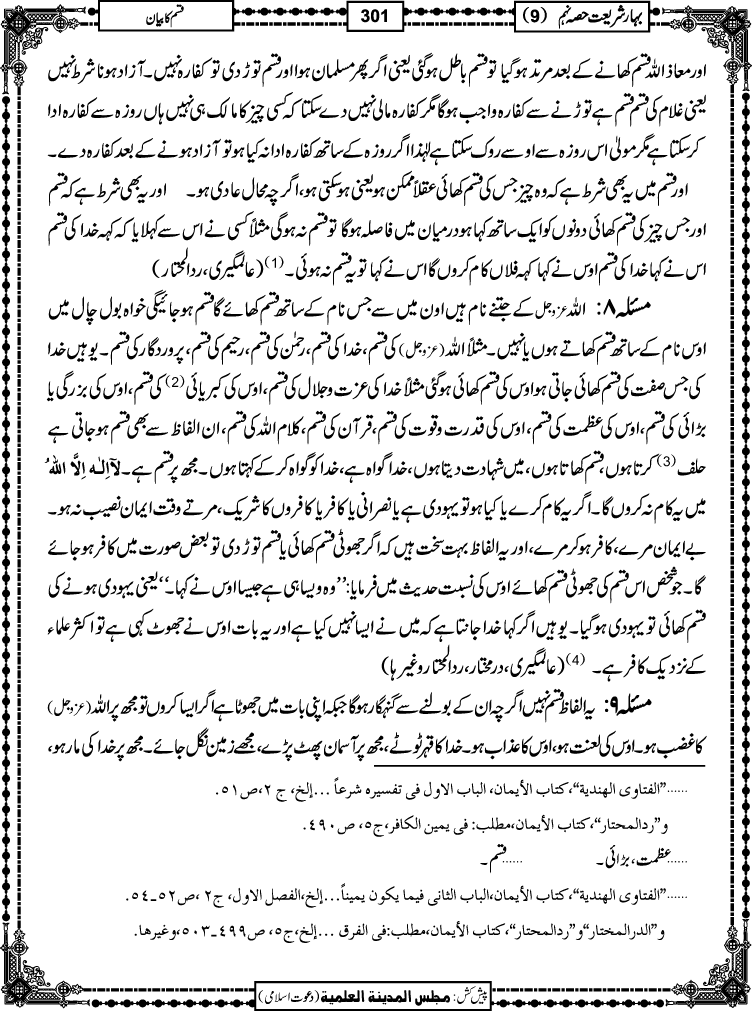 بہار شریعت حصہ نہم (9)
301
قسم کا بیان
اور معاذ اللہ قسم کھانے کے بعد مرتد ہوگیا تو قسم باطل ہوگئی یعنی اگر پھر مسلمان ہوا اور قسم توڑ دی تو کفارہ نہیں۔ آزاد ہونا شرط نہیں
یعنی غلام کی قسم قسم ہے توڑنے سے کفارہ واجب ہوگا مگر کفارہ مالی نہیں دے سکتا کہ کسی چیز کا مالک ہی نہیں ہاں روزہ سے کفارہ ادا
کر سکتا ہے مگر مولیٰ اس روزہ سے اوسے روک سکتا ہے لہٰذا اگر روزہ کے ساتھ کفارہ ادا نہ کیا ہو تو آزاد ہونے کے بعد کفارہ دے۔
اور قسم میں یہ بھی شرط ہے کہ وہ چیز جس کی قسم کھائی عقلاً ممکن ہو یعنی ہوسکتی ہو، اگرچہ محال عادی ہو۔ اور یہ بھی شرط ہے کہ قسم
اور جس چیز کی قسم کھائی دونوں کو ایک ساتھ کہا ہو درمیان میں فاصلہ ہوگا تو قسم نہ ہوگی مثلاً کسی نے اس سے کہلایا کہ کہہ خدا کی قسم
اس نے کہا خدا کی قسم اوس نے کہا کہہ فلاں کام کروں گا اس نے کہا تو یہ قسم نہ ہوئی۔(1) (عالمگیری، ردالمحتار)
مسئلہ ۸: اللہ عزوجل کے جتنے نام ہیں اون میں سے جس نام کے ساتھ قسم کھائے گا قسم ہوجائیگی خواہ بول چال میں
اوس نام کے ساتھ قسم کھاتے ہوں یا نہیں۔ مثلاً اللہ (عزوجل) کی قسم، خدا کی قسم، رحمٰن کی قسم، رحیم کی قسم، پروردگار کی قسم۔ یوہیں خدا
کی جس صفت کی قسم کھائی جاتی ہو اوس کی قسم کھائی ہوگئی مثلاً خدا کی عزت وجلال کی قسم، اوس کی کبریائی(2) کی قسم، اوس کی بزرگی یا
بڑائی کی قسم، اوس کی عظمت کی قسم، اوس کی قدرت وقوت کی قسم، قرآن کی قسم، کلام اللہ کی قسم، ان الفاظ سے بھی قسم ہوجاتی ہے
حلف(3) کرتا ہوں، قسم کھاتا ہوں، میں شہادت دیتا ہوں، خدا گواہ ہے، خدا کو گواہ کرکے کہتا ہوں۔ مجھ پر قسم ہے۔ لَآ اِلٰـہَ اِلَّا اللہُ
میں یہ کام نہ کروں گا۔ اگر یہ کام کرے یا کیا ہو تو یہودی ہے یا نصرانی یا کافر یا کافروں کا شریک، مرتے وقت ایمان نصیب نہ ہو۔
بے ایمان مرے، کافر ہوکر مرے، اور یہ الفاظ بہت سخت ہیں کہ اگر جھوٹی قسم کھائی یا قسم توڑ دی تو بعض صورت میں کافر ہوجائے
گا۔ جو شخص اس قسم کی جھوٹی قسم کھائے اوس کی نسبت حدیث میں فرمایا: ’’وہ ویسا ہی ہے جیسا اوس نے کہا۔‘‘ یعنی یہودی ہونے کی
قسم کھائی تو یہودی ہوگیا۔ یوہیں اگر کہا خدا جانتا ہے کہ میں نے ایسا نہیں کیا ہے اور یہ بات اوس نے جھوٹ کہی ہے تو اکثر علماء
کے نزدیک کافر ہے۔(4) (عالمگیری، درمختار، ردالمحتار وغیرہا)
مسئلہ ۹: یہ الفاظ قسم نہیں اگرچہ ان کے بولنے سے گنہگار ہوگا جبکہ اپنی بات میں جھوٹا ہے اگر ایسا کروں تو مجھ پر اللہ (عزوجل)
کا غضب ہو۔ اوس کی لعنت ہو، اوس کا عذاب ہو۔ خدا کا قہر ٹوٹے، مجھ پر آسمان پھٹ پڑے، مجھے زمین نگل جائے۔ مجھ پر خدا کی مار ہو،
......"الفتاوی الهندیة"، کتاب الأیمان، الباب الاول فی تفسیره شرعاً ...إلخ، ج ۲، ص ۵۱.
و"ردالمحتار"، کتاب الأیمان، مطلب: فی یمین الکافر، ج۵، ص ۴۹۰.
......عظمت، بڑائی۔ ......قسم۔
......"الفتاوی الهندیة"، کتاب الأیمان، الباب الثانی فیما یکون یمیناً...إلخ، الفصل الاول، ج۲، ص ۵۲۔۵۴.
و"الدرالمختار" و"ردالمحتار"، کتاب الأیمان، مطلب: فی الفرق ...إلخ، ج۵، ص ۴۹۹۔۵۰۳، وغیرها.
پیش کش: مجلس المدینة العلمیة (دعوت اسلامی)